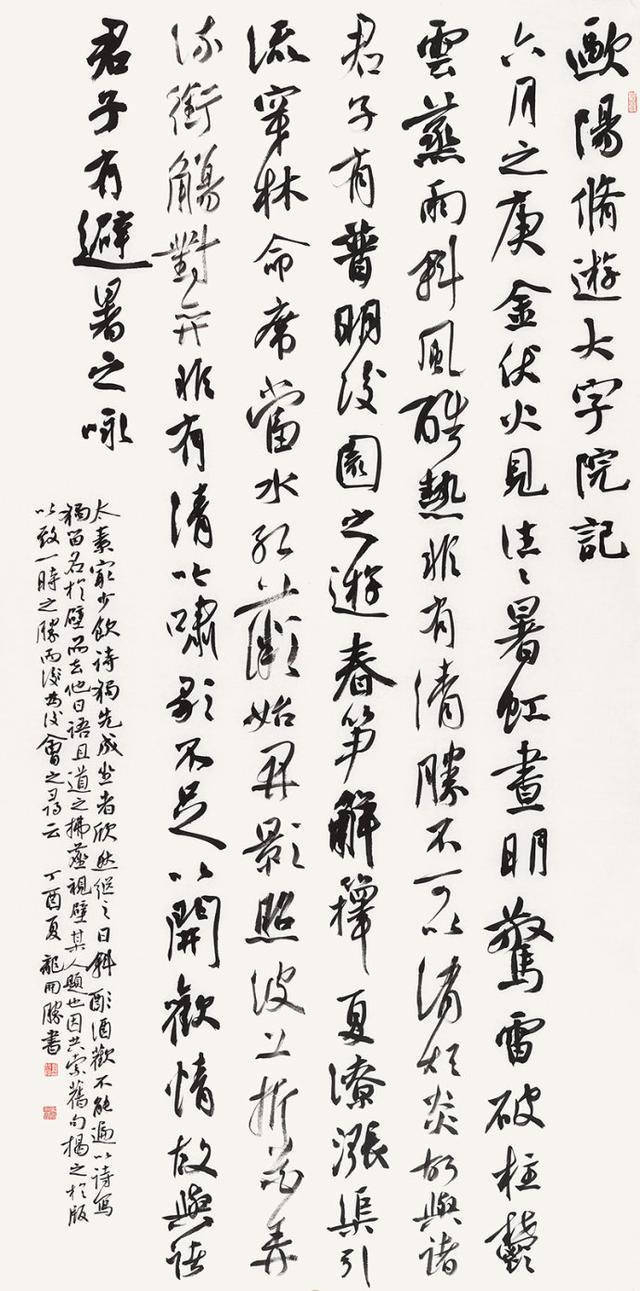 歐陽脩遊大字院記
六月之庚金伏火見往〻暑虹晝明驚雷破柱鬱
雲蒸雨斜風酷熱非有清勝不可以消煩炎故與諸
君子有普明後園之遊春笋解籜夏潦漲渠引
流穿林命席當水紅薇始開影照波上折花弄
流銜觴對弈非有清吟嘯歌不足以開歡情故與諸
君子有避暑之咏
太素最少飲詩獨先成坐者欣然繼之日斜酒歡不能遍以詩寫
獨留名於壁而去他日語且道之拂塵視壁某人題也因共索舊句揭之於版
以致一時之勝而後為後會之尋云 丁酉夏 龍開勝書